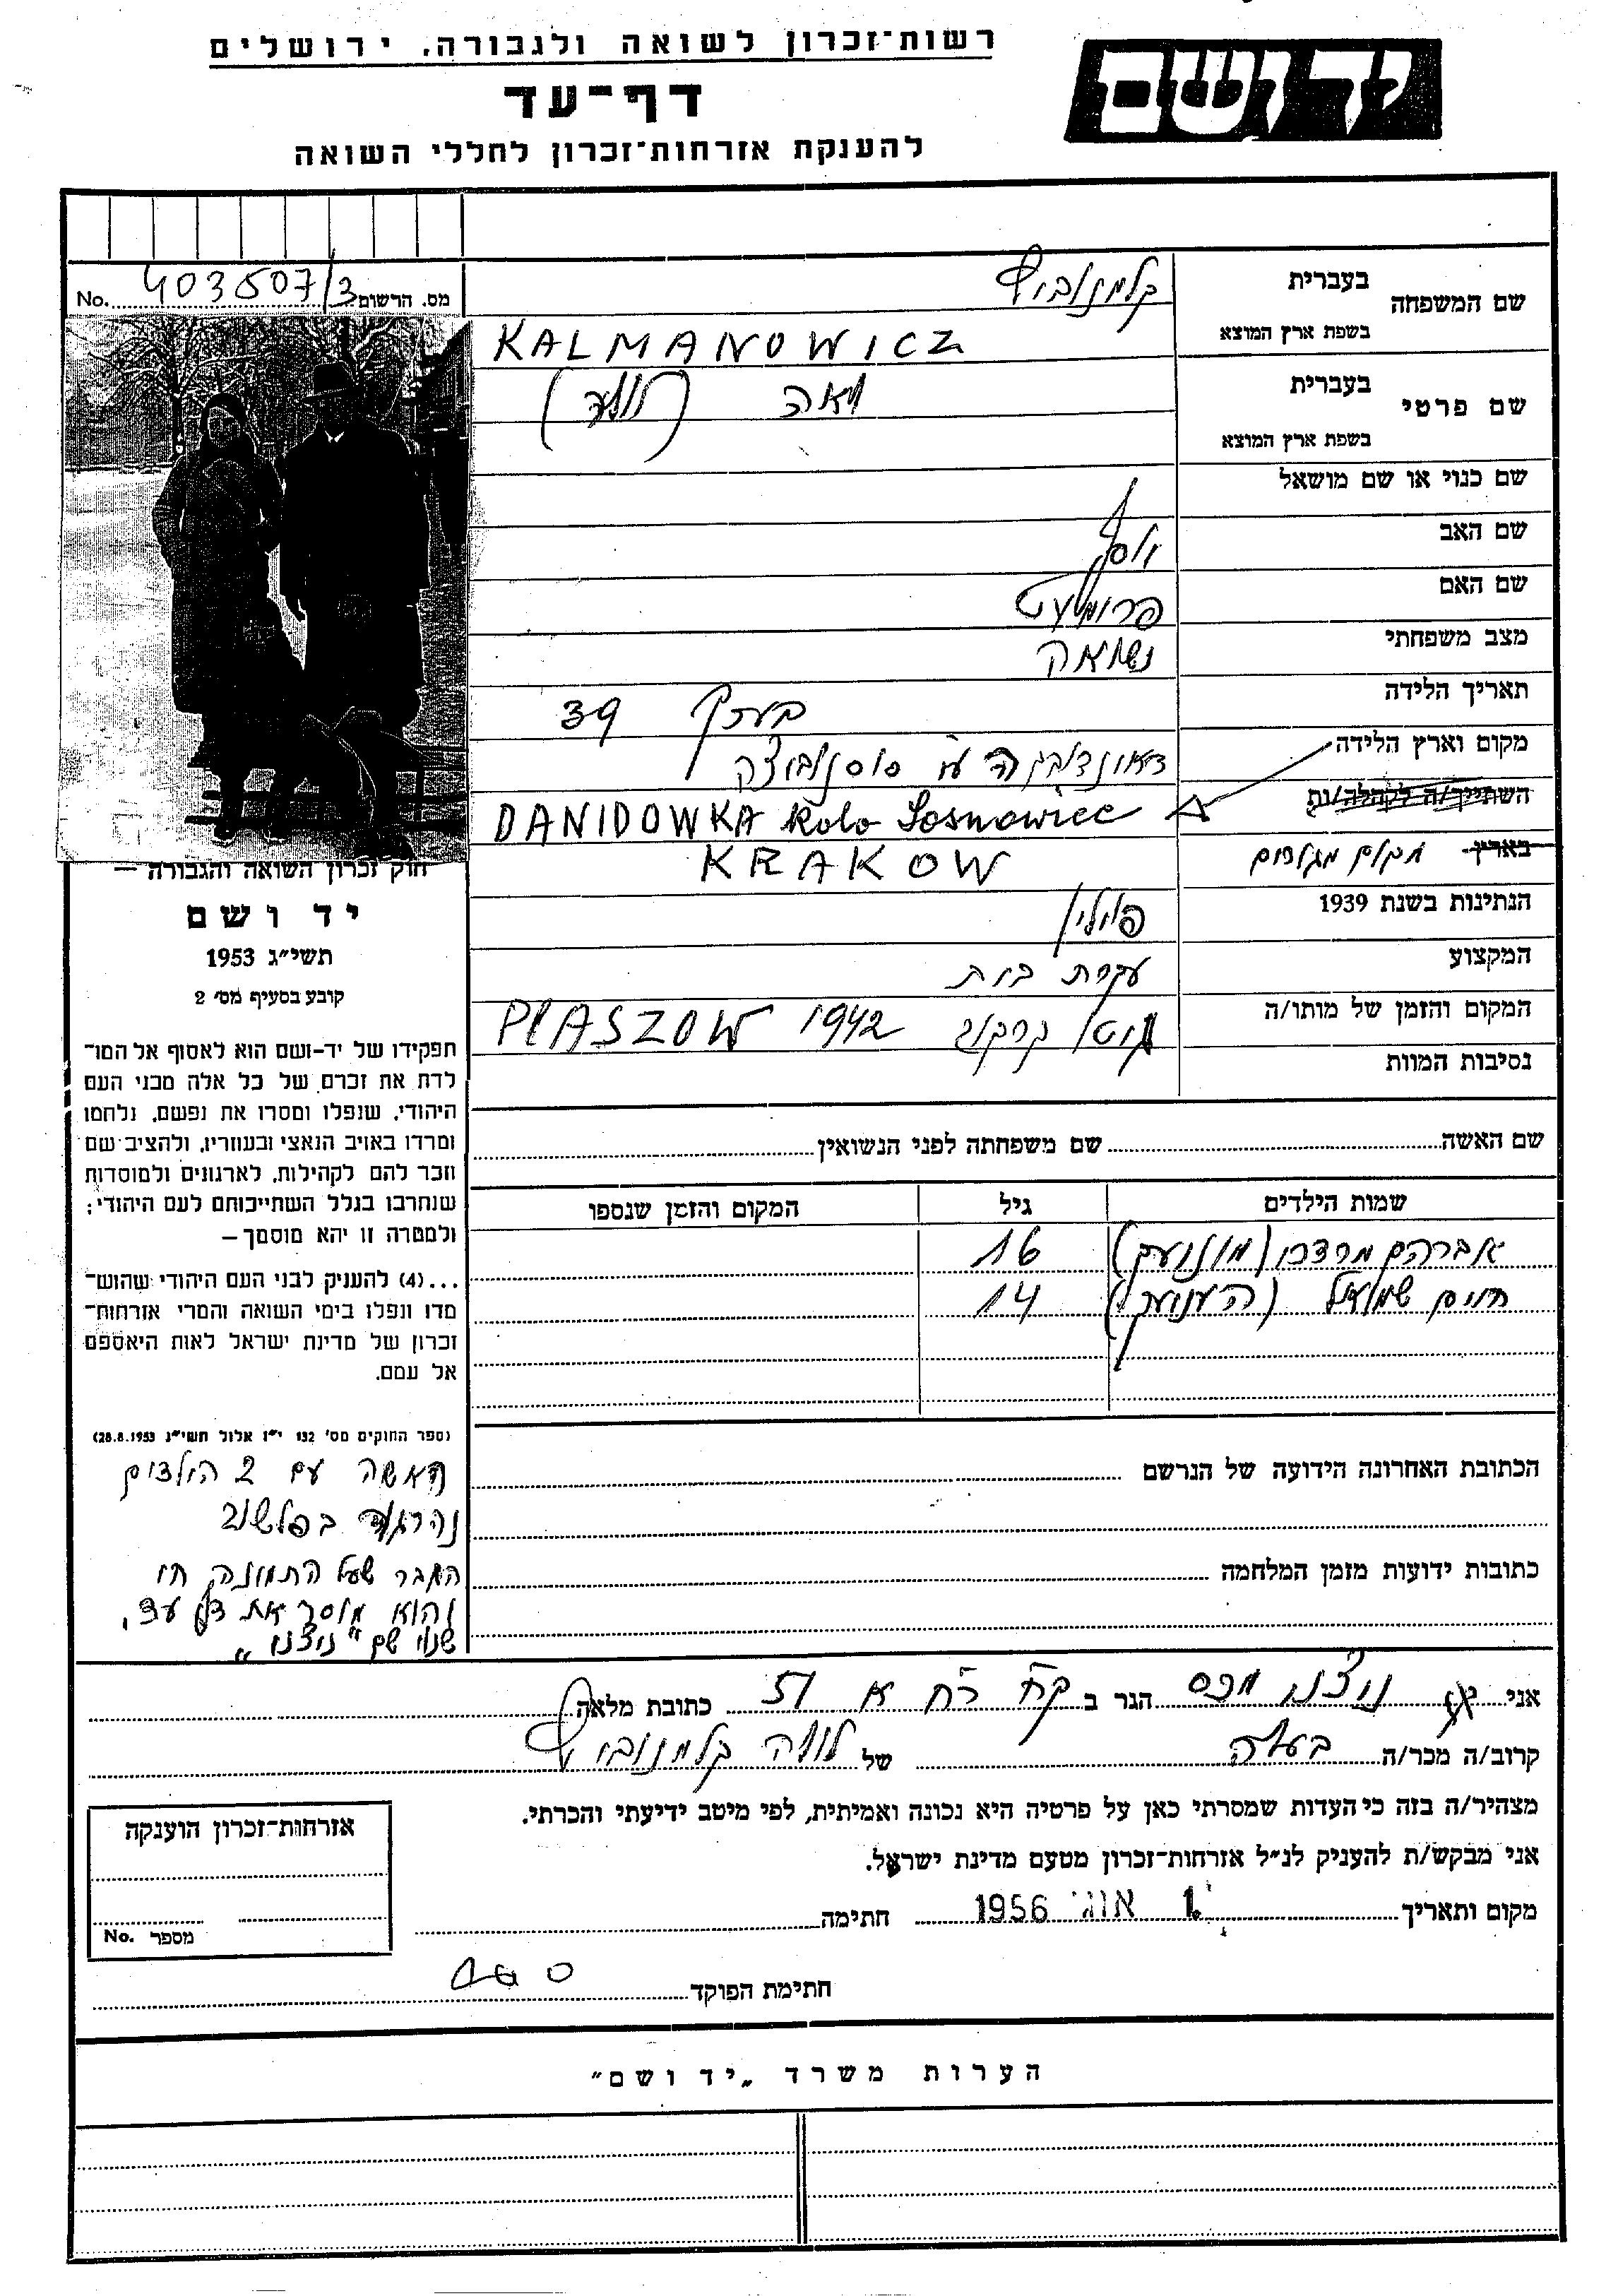 רשות־זכרון לשואה ולגבורה, ירושלים
יד ושם
דף־עד
להענקת אזרחות־זכרון לחללי השואה
מס. הרשום 403507/3 No.
שם המשפחה
בעברית קלמנוביץ
בשפת ארץ המוצא KALMANOWICZ
שם פרטי
בעברית לאה
בשפת ארץ המוצא
שם כנוי או שם מושאל
שם האב יוסף
שם האם פרומעט
מצב משפחתי נשואה
תאריך הלידה בערך 39
מקום וארץ הלידה ע"י סוסנוביצה
השתייך/ה לקהלה/ות DANIDOWKA koło Sosnowiec
בארץ מקום מגורים KRAKOW
הנתינות בשנת 1939 פולין
המקצוע עקרת בית
המקום והזמן של מותו/ה גיטו קרקוב PŁASZOW 1942
נסיבות המוות
שם האשה שם משפחתה לפני הנשואין
שמות הילדים גיל המקום והזמן שנספו
אברהם מרדכי 16
חיים שמואל (הענעך) 14
הכתובת האחרונה הידועה של הנרשם
כתובות ידועות מזמן המלחמה
חוק זכרון השואה והגבורה —
יד ושם
תשי״ג 1953
קובע בסעיף מס׳ 2
תפקידו של יד-ושם הוא לאסוף אל המו־
לדת את זכרם של כל אלה מבני העם
היהודי, שנפלו ומסרו את נפשם, נלחמו
ומרדו באויב הנאצי ובעוזריו, ולהציב שם
וזכר להם לקהילות, לארגונים ולמוסדות
שנחרבו בגלל השתייכותם לעם היהודי;
ולמטרה זו יהא מוסמך —
...(4) להענק לבני העם היהודי שהוש־
מדו ונפלו בימי השואה והמרי אזרחות־
זכרון של מדינת ישראל לאות היאספם
אל עמם.
(ספר החוקים מס׳ 132 י״ז אלול תשי״ג 28.8.1953)
האשה עם 2 הילדים
נהרגו בפלשוב
הגבר שעל התמונה חי
והוא מוסר את דף עד,
שנוי שם "ניצני"
אני ניצני הגר ב 51 כתובת מלאה
קרוב/ה מכר/ה בעלה של לאה קלמנוביץ
מצהיר/ה בזה כי העדות שמסרתי כאן על פרטיה היא נכונה ואמיתית, לפי מיטב ידיעתי והכרתי.
אני מבקש/ת להעניק לנ״ל אזרחות־זכרון מטעם מדינת ישראל.
מקום ותאריך 1. אוג׳ 1956 חתימה
חתימת הפוקד
אזרחות־זכרון הוענקה
מספר No.
הערות משרד „יד ושם״